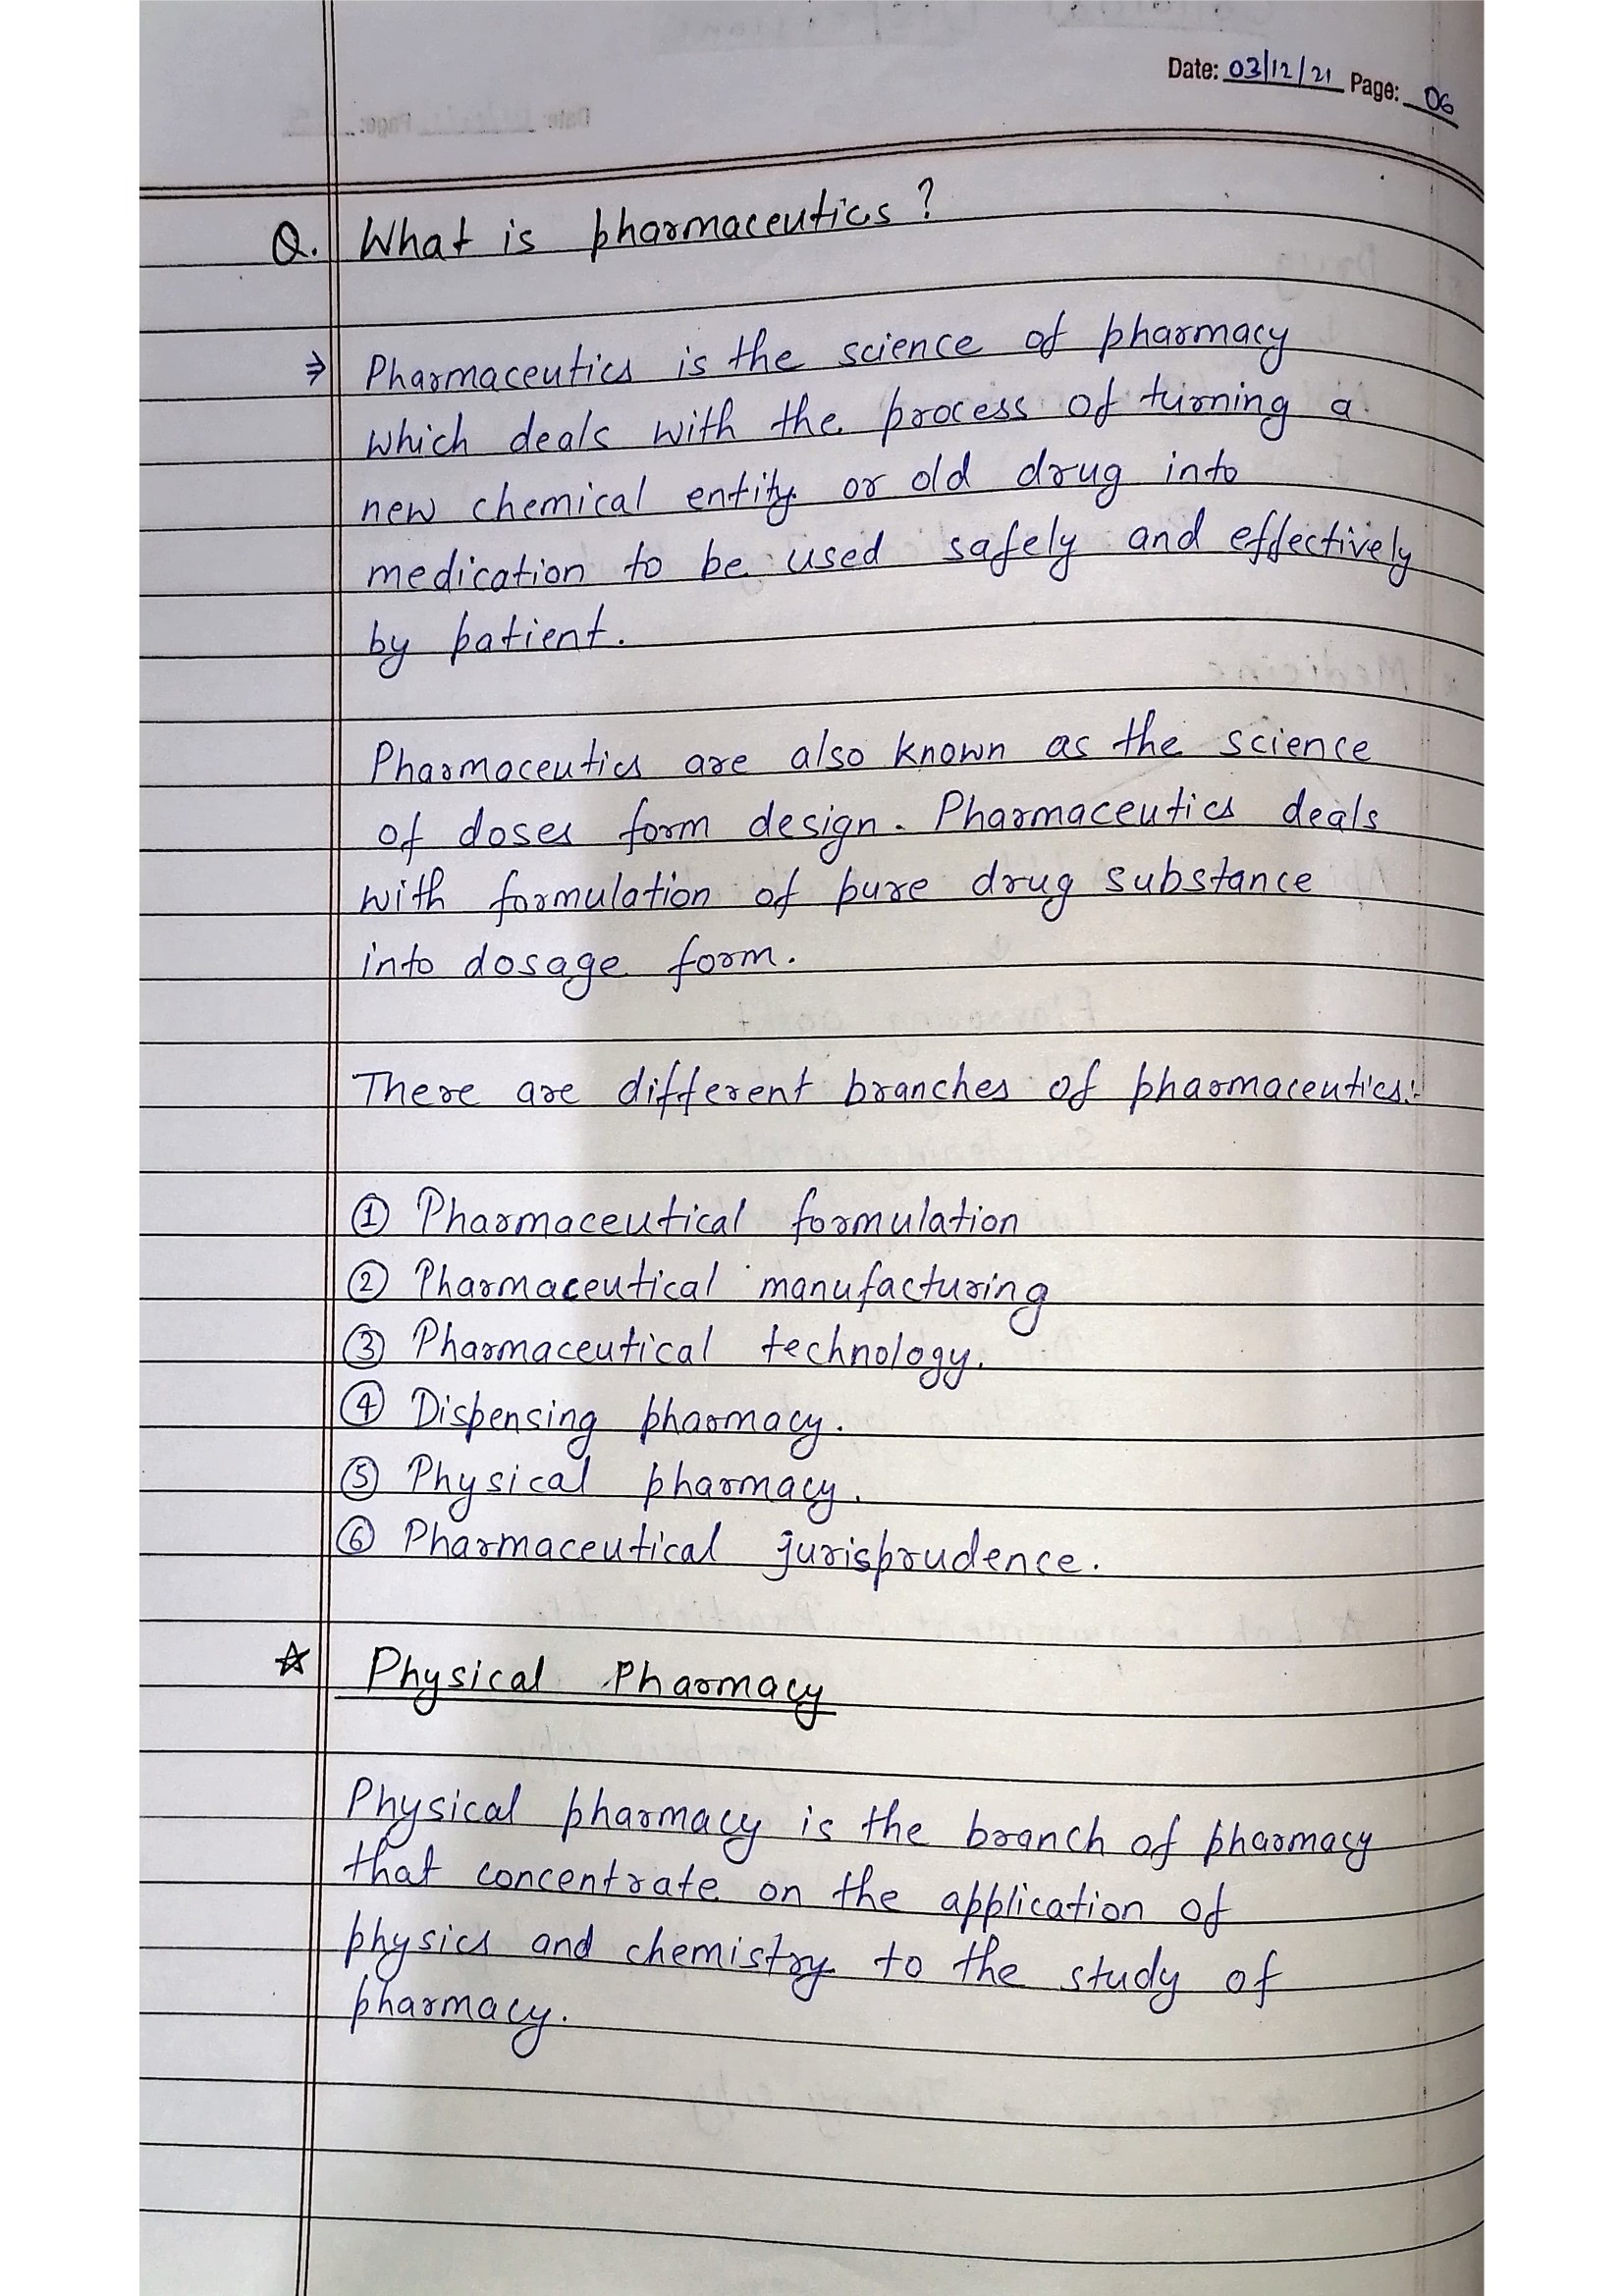 Date: 03/12/21 Page: 06
Q. What is pharmaceutics?
⇒ Pharmaceutics is the science of pharmacy
which deals with the process of turning a
new chemical entity or old drug into
medication to be used safely and effectively
by patient.
Pharmaceutics are also known as the science
of doses form design. Pharmaceutics deals
with formulation of pure drug substance
into dosage form.
There are different branches of pharmaceutics:-
① Pharmaceutical formulation
② Pharmaceutical manufacturing
③ Pharmaceutical technology.
④ Dispensing pharmacy.
⑤ Physical pharmacy.
⑥ Pharmaceutical jurisprudence.
☆ Physical Pharmacy
Physical pharmacy is the branch of pharmacy
that concentrate on the application of
physics and chemistry to the study of
pharmacy.